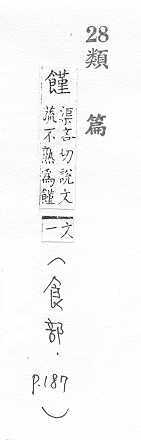 28
類篇
饉
渠吝切說文
蔬不熟為饉
文一
(食部.
p.187)